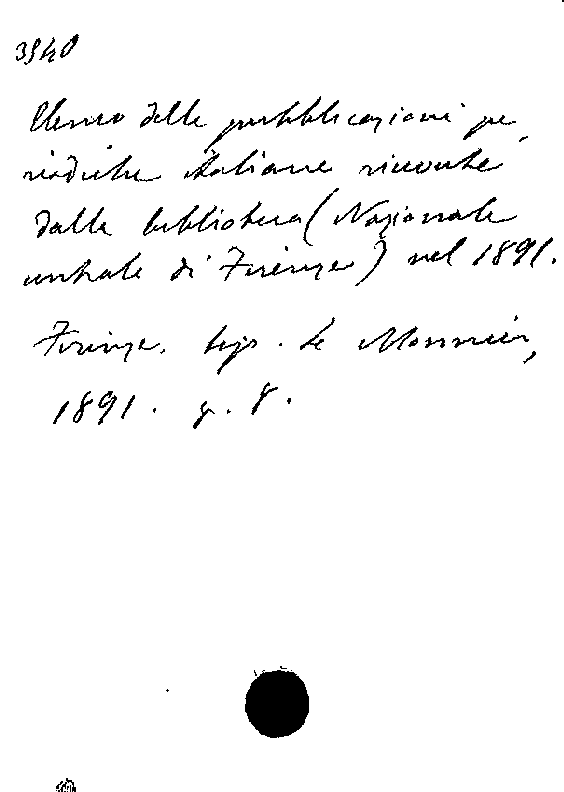 3940
Elenco delle pubblicazioni pe
riodiche italiane ricevute
dalla biblioteca (Nazionale
centrale di Firenze) nel 1891.
Firenze. tip. Le Monnier,
1891. g. 8.